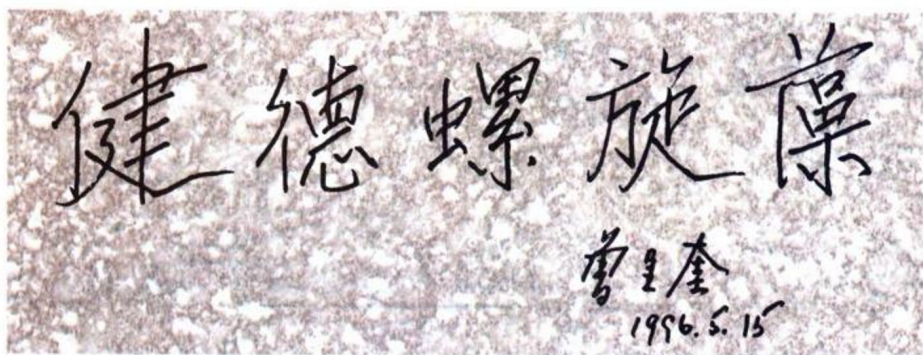 健德螺旋藻
曾呈奎
1996.5.15